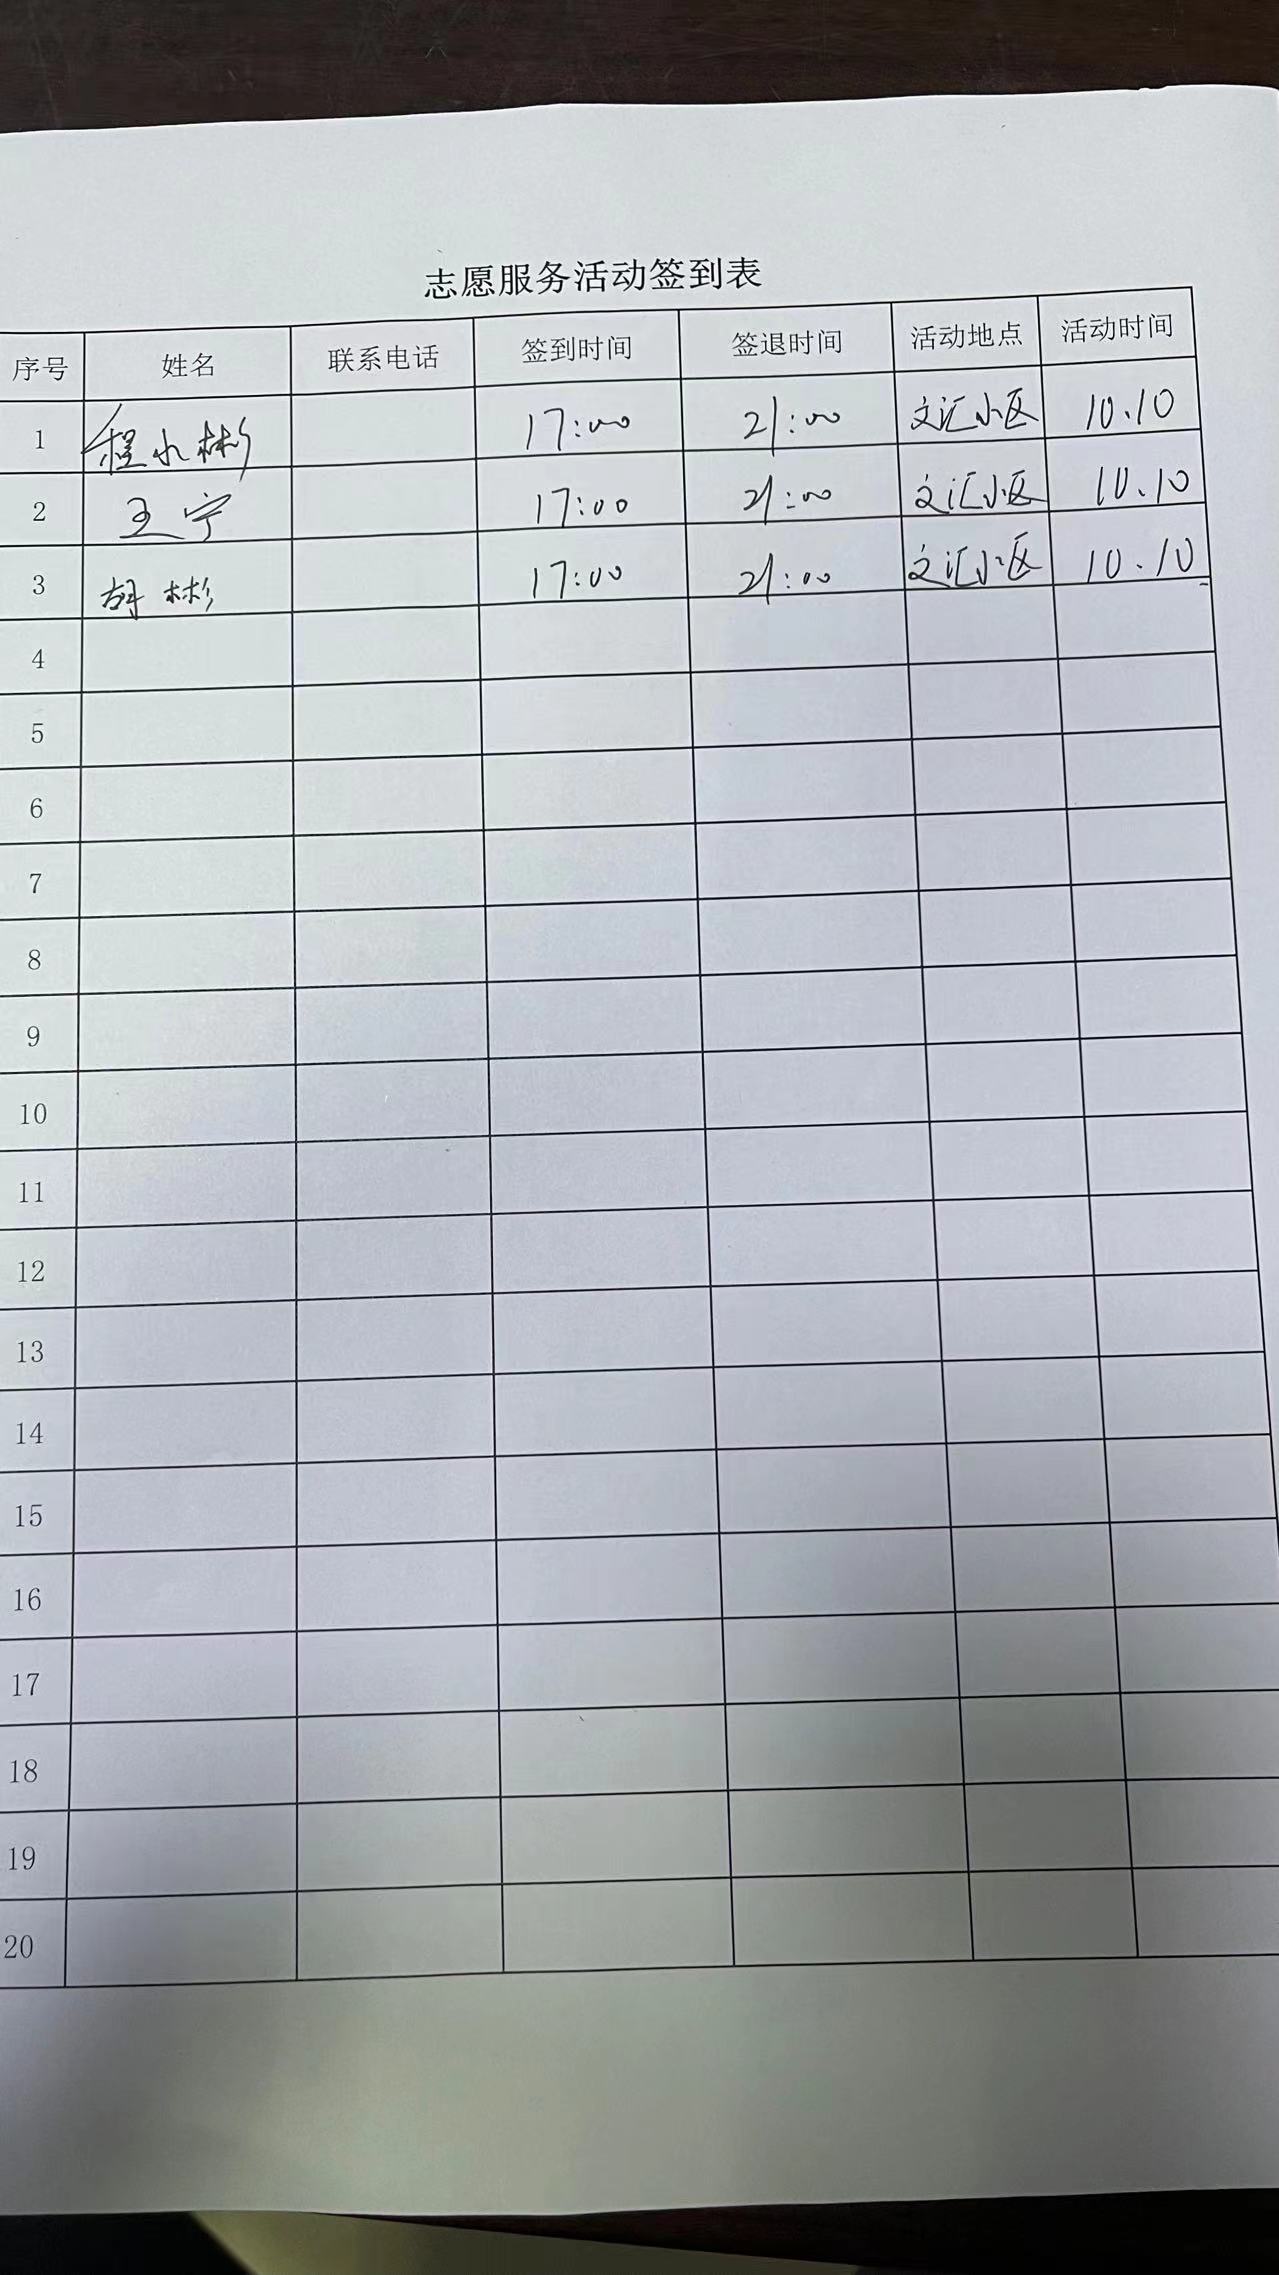 志愿服务活动签到表
序号 姓名 联系电话 签到时间 签退时间 活动地点 活动时间
1 程水彬 17:00 21:00 文汇小区 10.10
2 王宁 17:00 21:00 文汇小区 10.10
3 胡彬 17:00 21:00 文汇小区 10.10
4
5
6
7
8
9
10
11
12
13
14
15
16
17
18
19
20